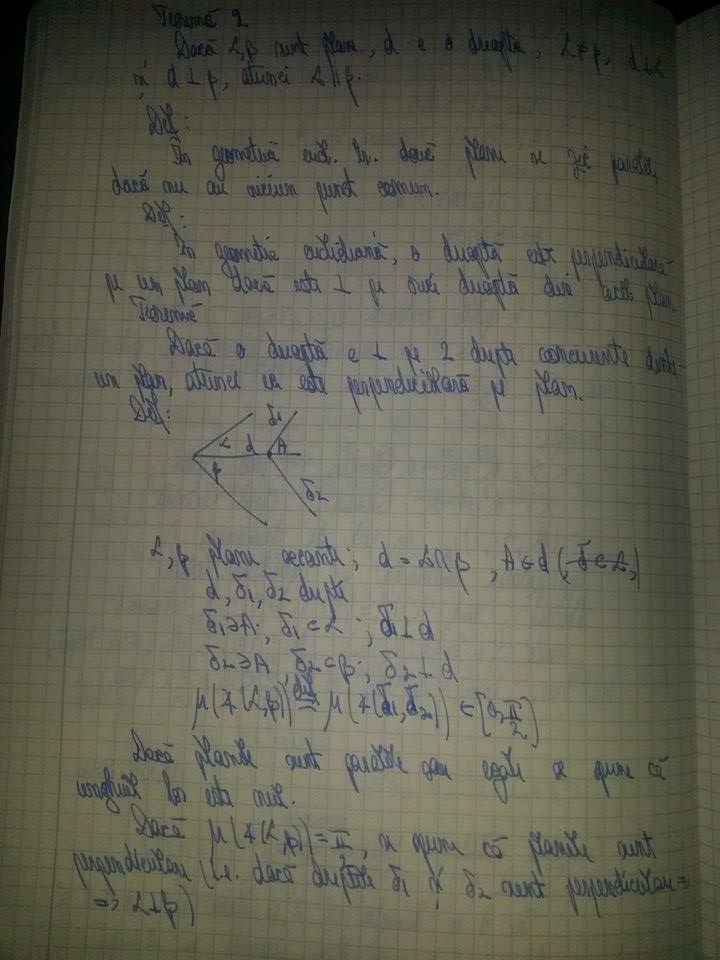 Teoremă 2.
Dacă α, β sunt plane, d e o dreaptă, α≠β, d⊥α
și d⊥β, atunci α∥β.
Def:
În geometria eucl. două plane se zic paralele
dacă nu au niciun punct comun.
Def:
În geometria euclidiană, o dreaptă este perpendiculară
pe un plan dacă este ⊥ pe orice dreaptă din acel plan
Teoremă
Dacă o dreaptă e ⊥ pe 2 drepte concurente dintr-
un plan, atunci ea este perpendiculară pe plan.
Def:
δ1
α d A
β
δ2
α, β plane secante; d = α∩β ; A∈d (, δ⊂α,)
d, δ1, δ2 drepte
δ1∋A; δ1⊂α; δ1⊥d
δ2∋A, δ2⊂β; δ2⊥d
μ(∢(α,β)) def= μ(∢(δ1,δ2)) ∈ [0,π/2]
Dacă planele sunt paralele sau egale se spune că
unghiul lor este nul.
Dacă μ(∢(α,β))=π/2, se spune că planele sunt
perpendiculare (i.e. dacă dreptele δ1 și δ2 sunt perpendiculare =
=> α⊥β)